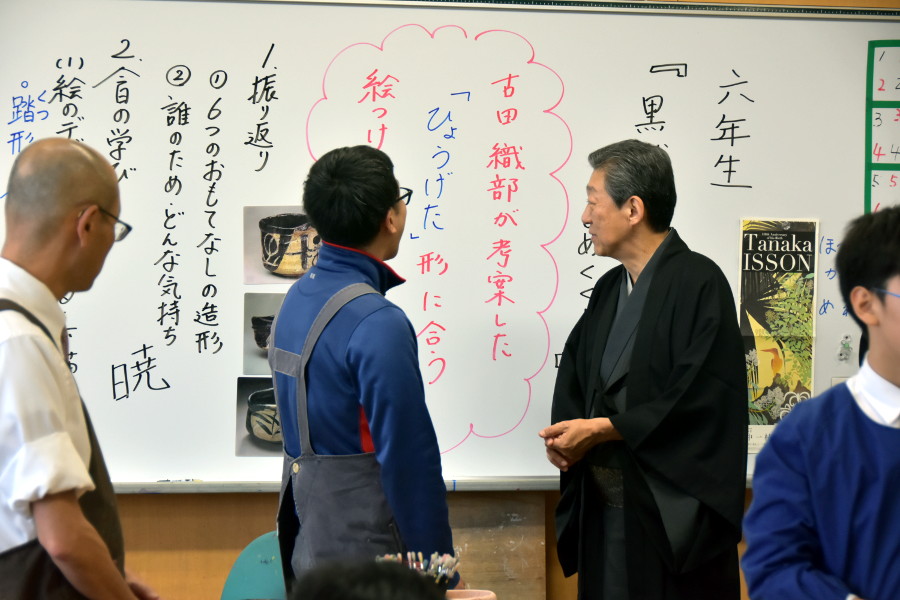 六年生
『黒
めぐ
古田織部が考案した
「ひょうげた」形に合う
絵つけ
1. 振り返り
① 6つのおもてなしの造形
② 誰のため・どんな気持ち
暁
2. 今日の学び
(1) 絵のデ
くつ
踏形
Tanaka
ISSON
1
2
3
4
5